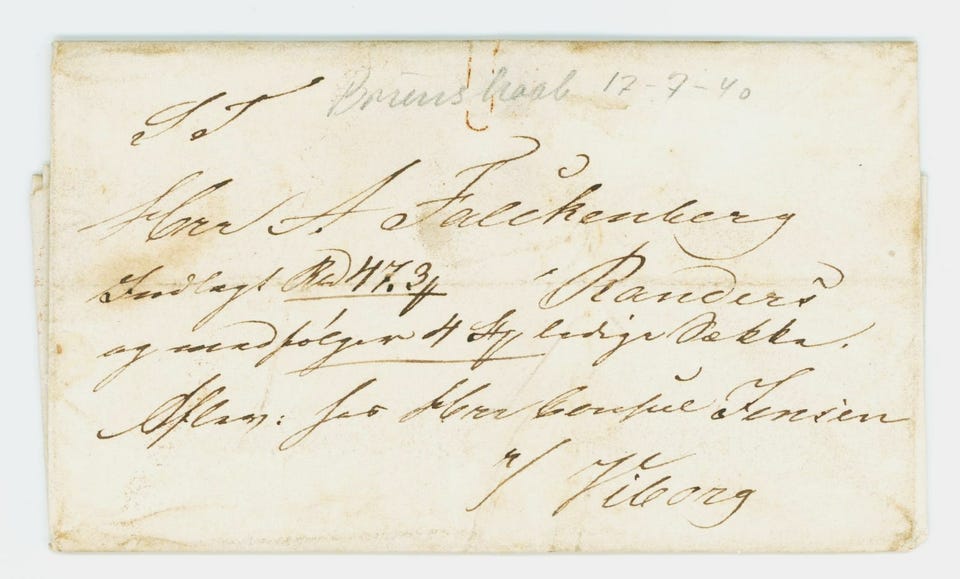 Bruunshaab 17-7-40
S T
Herr A Falckenberg
Indlagt Rd 47. 3 ß Randers
og medfølger 4 St ledige Sække.
Aflev: hos Herr Consul Jensen
i/ Viborg